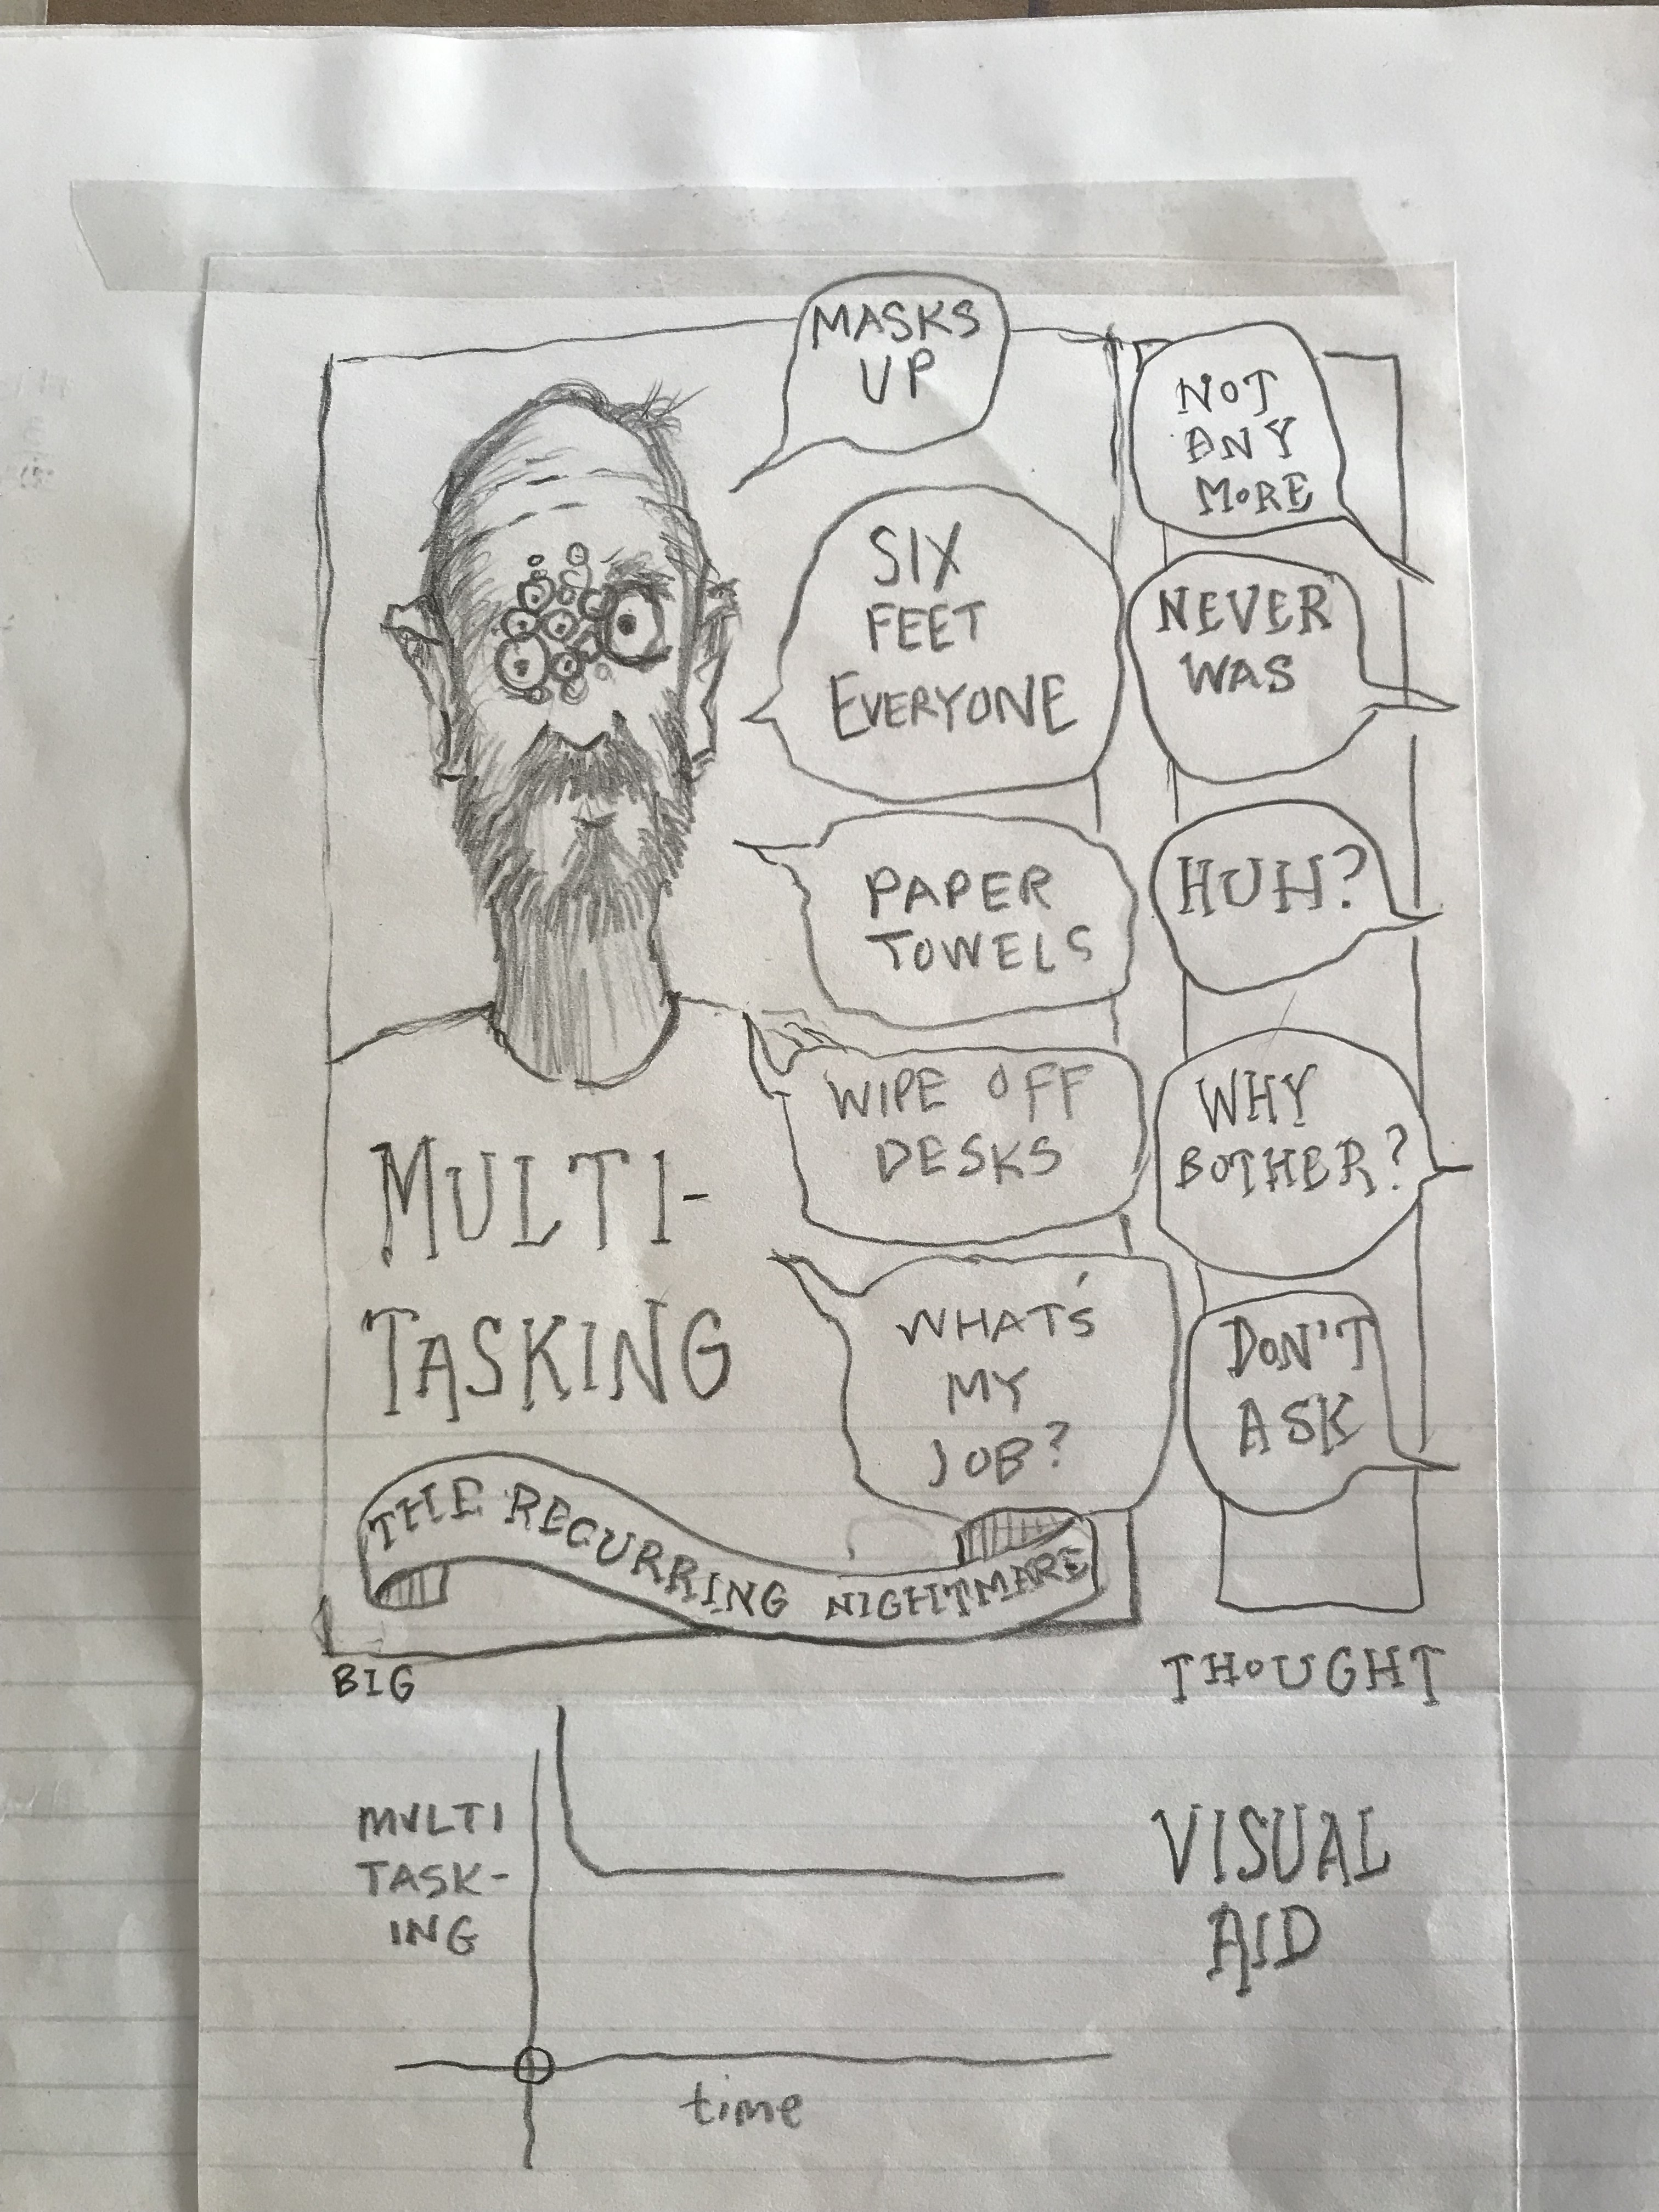 MASKS
UP
NOT
ANY
MORE
SIX
FEET
EVERYONE
NEVER
WAS
PAPER
TOWELS
HUH?
WIPE OFF
DESKS
WHY
BOTHER?
WHAT'S
MY
JOB?
DON'T
ASK
MULTI-
TASKING
THE RECURRING NIGHTMARE
BIG THOUGHT
MULTI
TASK-
ING
VISUAL
AID
time